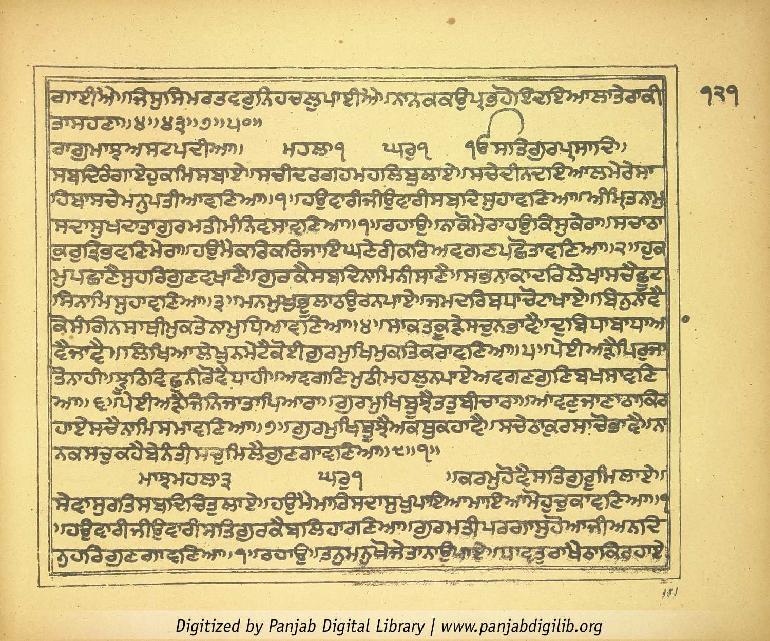 ਗਾਈਐ॥ਜਿਸੁਸਿਮਰਤਵਰੁਨਿਹਚਲੁਪਾਈਐ॥ਨਾਨਕਕਉਪ੍ਰਭਹੋਇਦਇਆਲਾਤੇਰਾਕੀ
੧੨੧
ਤਾਸਹਣਾ॥੪॥੪੩॥੭॥੫੦॥
ਰਾਗੁਮਾਝਅਸਟਪਦੀਆ॥ ਮਹਲਾ੧ ਘਰੁ੧ ੴਸਤਿਗੁਰਪ੍ਰਸਾਦਿ॥
ਸਬਦਿਰੰਗਾਏਹੁਕਮਿਸਬਾਏ॥ਸਚੀਦਰਗਹਮਹਲਿਬੁਲਾਏ॥ਸਚੇਦੀਨਦਇਆਲਮੇਰੇਸਾ
ਹਿਬਾਸਚੇਮਨੁਪਤੀਆਵਣਿਆ॥੧॥ਹਉਵਾਰੀਜੀਉਵਾਰੀਸਬਦਿਸੁਹਾਵਣਿਆ॥ਅੰਮ੍ਰਿਤਨਾਮੁ
ਸਦਾਸੁਖਦਾਤਾਗੁਰਮਤੀਮੰਨਿਵਸਾਵਣਿਆ॥੧॥ਰਹਾਉ॥ਨਾਕੋਮੇਰਾਹਉਕਿਸੁਕੇਰਾ॥ਸਾਚਾਠਾ
ਕੁਰੁਤ੍ਰਿਭਵਣਿਮੇਰਾ॥ਹਉਮੈਕਰਿਕਰਿਜਾਇਘਣੇਰੀਕਰਿਅਵਗਣਪਛੋਤਾਵਣਿਆ॥੨॥ਹੁਕ
ਮੁਪਛਾਣੈਸੁਹਰਿਗੁਣਵਖਾਣੈ॥ਗੁਰਕੈਸਬਦਿਨਾਮਿਨੀਸਾਣੈ॥ਸਭਨਾਕਾਦਰਿਲੇਖਾਸਚੈਛੂਟ
ਸਿਨਾਮਿਸੁਹਾਵਣਿਆ॥੩॥ਮਨਮੁਖੁਭੂਲਾਠਉਰਨਪਾਏ॥ਜਮਦਰਿਬਧਾਚੋਟਾਖਾਏ॥ਬਿਨੁਨਾਵੈ
ਕੋਸੰਗਿਨਸਾਥੀਮੁਕਤੇਨਾਮੁਧਿਆਵਣਿਆ॥੪॥ਸਾਕਤਕੂੜੇਸਚੁਨਭਾਵੈ॥ਦੁਬਿਧਾਬਾਧਾਆ
ਵੈਜਾਵੈ॥ਲਿਖਿਆਲੇਖੁਨਮੇਟੈਕੋਈਗੁਰਮੁਖਿਮੁਕਤਿਕਰਾਵਣਿਆ॥੫॥ਪੇਈਅੜੈਪਿਰੁਜਾ
ਤੋਨਾਹੀ॥ਝੂਠਿਵਿਛੁਨੀਰੋਵੈਧਾਹੀ॥ਅਵਗਣਿਮੁਠੀਮਹਲੁਨਪਾਏਅਵਗਣਗੁਣਿਬਖਸਾਵਣਿ
ਆ॥੬॥ਪੇਈਅੜੈਜਿਨਿਜਾਤਾਪਿਆਰਾ॥ਗੁਰਮੁਖਿਬੂਝੈਤਤੁਬੀਚਾਰਾ॥ਆਵਣੁਜਾਣਾਠਾਕਿਰ
ਹਾਏਸਚੈਨਾਮਿਸਮਾਵਣਿਆ॥੭॥ਗੁਰਮੁਖਿਬੂਝੈਅਕਥੁਕਹਾਵੈ॥ਸਚੇਠਾਕੁਰਸਾਚੋਭਾਵੈ॥ਨਾ
ਨਕਸਚੁਕਹੈਬੇਨੰਤੀਸਚੁਮਿਲੈਗੁਣਗਾਵਣਿਆ॥੮॥੧॥
ਮਾਝਮਹਲਾ੩ ਘਰੁ੧ ॥ਕਰਮੁਹੋਵੈਸਤਿਗੁਰੂਮਿਲਾਏ॥
ਸੇਵਾਸੁਰਤਿਸਬਦਿਚਿਤੁਲਾਏ॥ਹਉਮੈਮਾਰਿਸਦਾਸੁਖੁਪਾਇਆਮਾਇਆਮੋਹੁਚੁਕਾਵਣਿਆ॥੧
॥ਹਉਵਾਰੀਜੀਉਵਾਰੀਸਤਿਗੁਰਕੈਬਲਿਹਾਰਣਿਆ॥ਗੁਰਮਤੀਪਰਗਾਸੁਹੋਆਜੀਅਨਦਿ
ਨੁਹਰਿਗੁਣਗਾਵਣਿਆ॥੧॥ਰਹਾਉ॥ਤਨੁਮਨੁਖੋਜੇਤਾਨਾਉਪਾਏ॥ਧਾਵਤੁਰਾਖੈਠਾਕਿਰਹਾਏ
181
Digitized by Panjab Digital Library | www.panjabdigilib.org